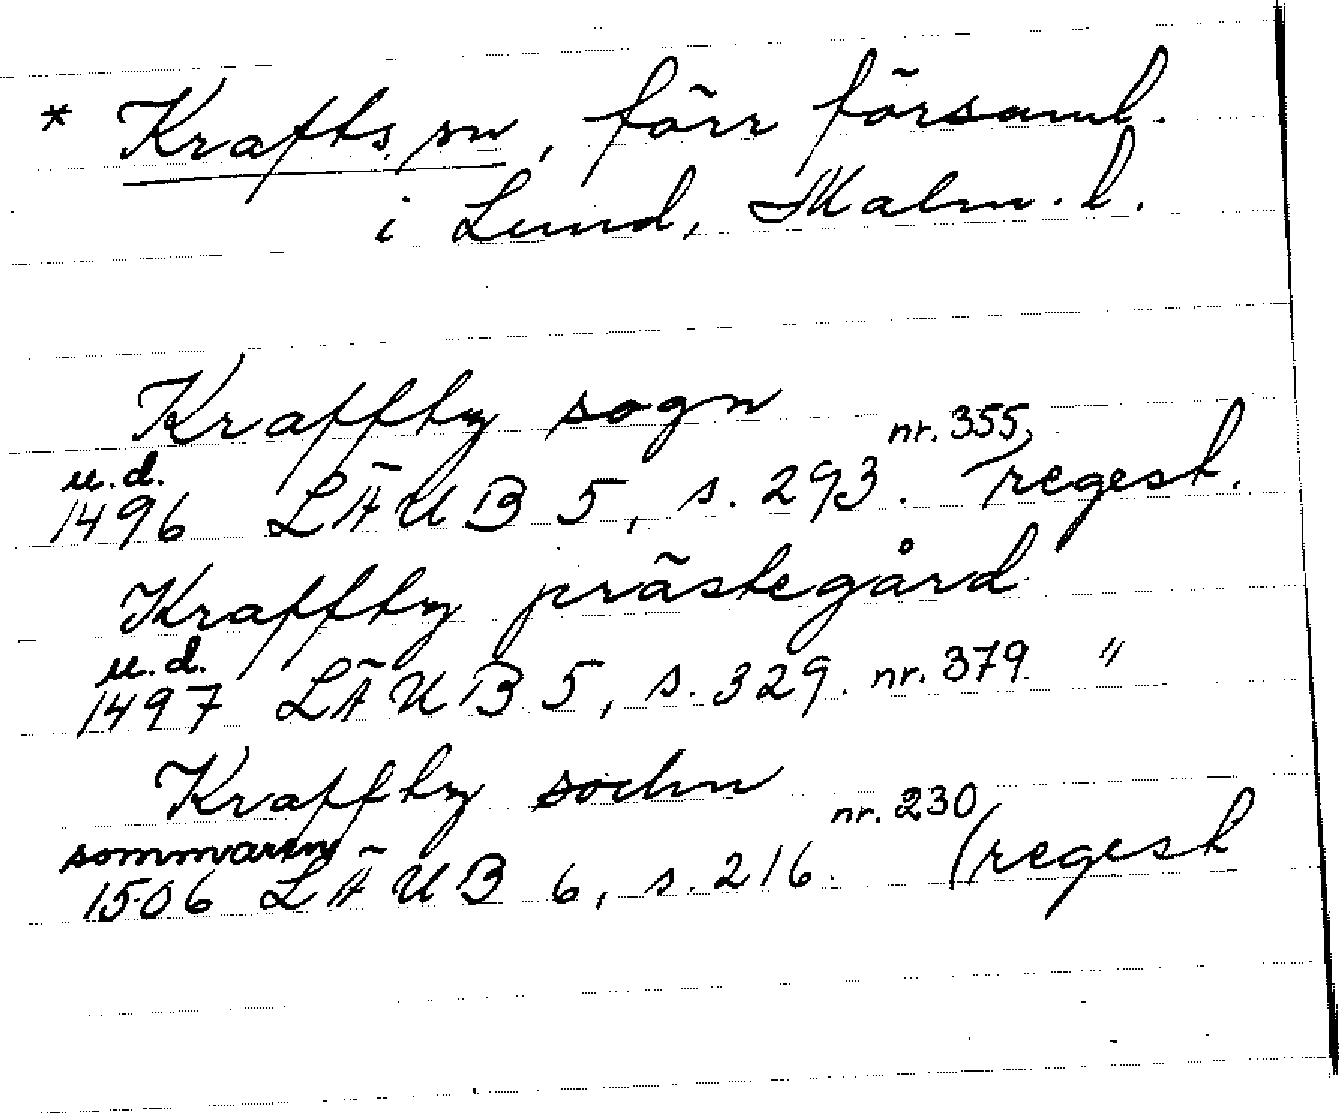 * Krafts sn, förr församl.
i Lund, Malm. l.
Kraffty sogn
u.d. 1496 LÄUB 5, s. 293. nr. 355, regest.
Kraffty prästegård
u.d. 1497 LÄUB 5, s. 329. nr. 379. "
Kraffty sochn
sommaren 1506 LÄUB 6, s. 216. nr. 230 (regest